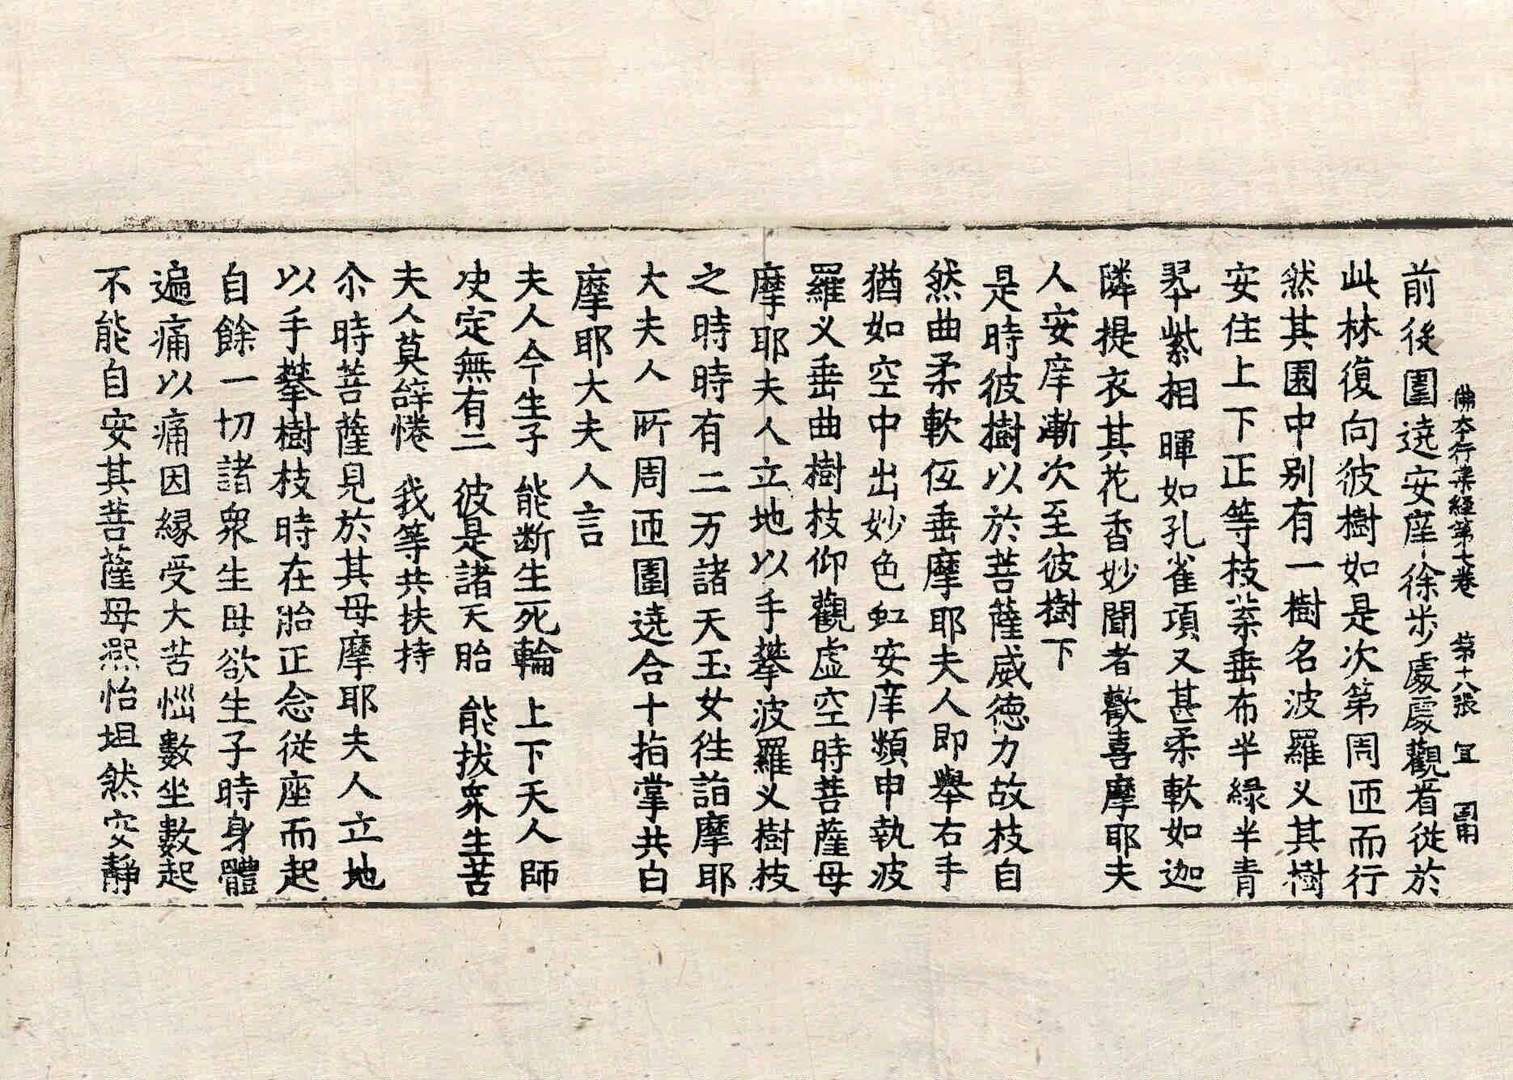 佛本行集經第七卷 第十八張 冝
前後圍遶安庠徐步處處觀看從於
此林復向彼樹如是次第周匝而行
然其園中別有一樹名波羅义其樹
安住上下正等枝葉垂布半緑半青
翠紫相暉如孔雀項又甚柔軟如迦
隣提衣其花香妙聞者歡喜摩耶夫
人安庠漸次至彼樹下
是時彼樹以於菩薩威德力故枝自
然曲柔軟伍垂摩耶夫人即舉右手
猶如空中出妙色虹安庠頻申執波
羅义垂曲樹枝仰觀虛空時菩薩母
摩耶夫人立地以手攀波羅义樹枝
之時時有二万諸天玉女往詣摩耶
大夫人所周匝圍遶合十指掌共白
摩耶大夫人言
夫人今生子 能断生死輪 上下天人師
決定無有二 彼是諸天胎 能拔衆生苦
夫人莫辞惓 我等共扶持
尒時菩薩見於其母摩耶夫人立地
以手攀樹枝時在胎正念從座而起
自餘一切諸衆生母欲生子時身體
遍痛以痛因縁受大苦惱數坐數起
不能自安其菩薩母熙怡坦然安靜